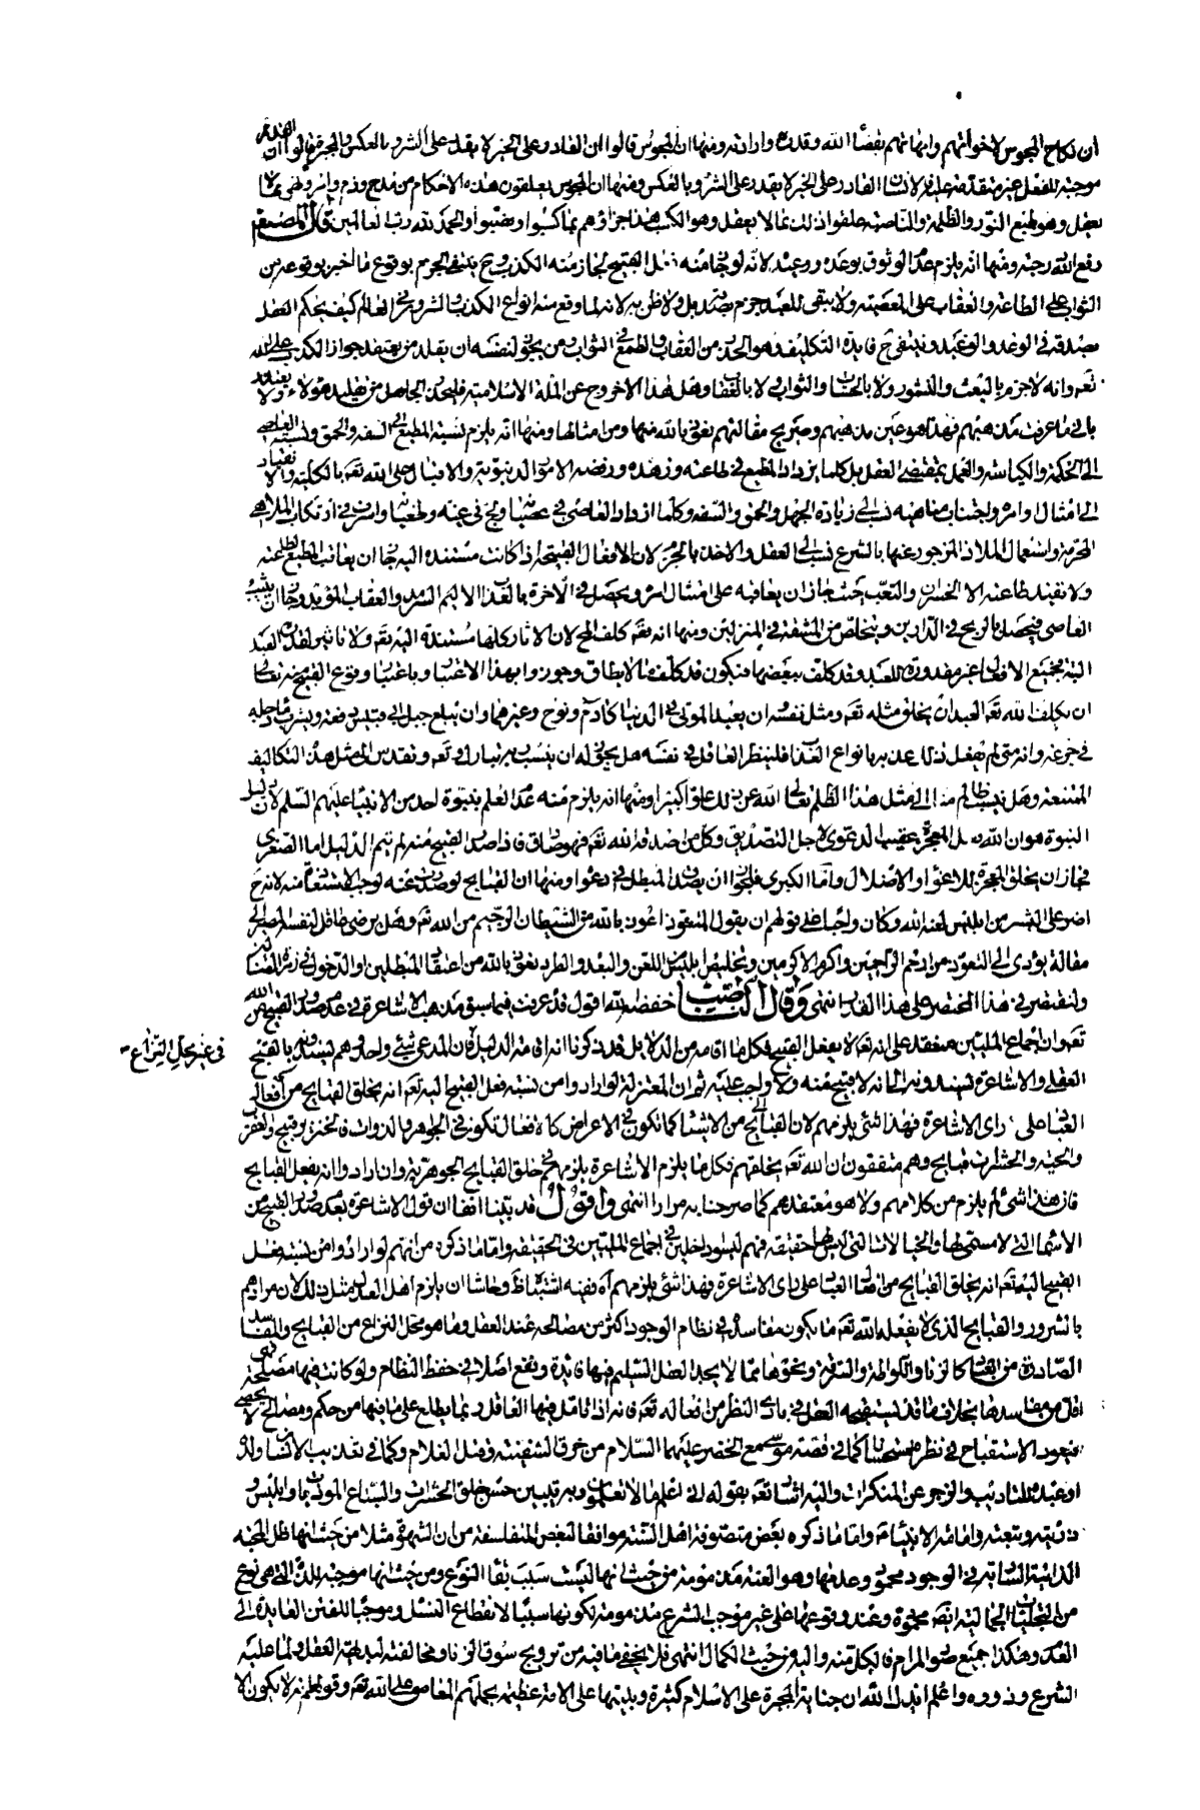 ان نكاح المجوس لاخواتهم وامهاتهم بقضاء الله وقدره وارادته ومنها ان المجوس قالوا ان القادر على الخير لا يقدر على الشر وبالعكس والمجبرة قالوا ان القدرة
موجبة للفعل غير متقدمة عليه فالانسان القادر على الخير لا يقدر على الشر وبالعكس ومنها ان المجوس يعلقون هذه الاحكام من مدح وذم وامر ونهى بما لا
يعقل وهو طبع النور والظلمة والناصبة علقوا ذلك بما لا يعقل وهو الكسب هذا جزاؤهم بما كسبوا والحمد لله رب العالمين قال المصنف
رفع الله درجته ومنها انه يلزم عدم الوثوق بوعده ووعيده لانه لو جاز منه فعل القبيح لجاز منه الكذب وح ينتفى الجزم بوقوع ما اخبر بوقوعه من
الثواب على الطاعة والعقاب على المعصية ولا يبقى للعبد جزم بصدقه بل ولا ظن به لانه لما وقع منه انواع الكذب والشرور في العالم كيف يحكم العقل
بصدقه في الوعد والوعيد وينتفى ح فايدة التكليف وهو الحذر من العقاب والطمع في الثواب ومن يجوز لنفسه ان يقلد من يعتقد جواز الكذب على الله
تعه وانه لا جزم بالبعث والنشور ولا بالحساب ولا بالثواب ولا بالعقاب وهل هذا الا خروج عن الملة الاسلامية فليحذر الجاهل من تقليد هؤلاء ولا يعتذر
باني ما عرفت مذهبهم فهذا هو عين مذهبهم وصريح مقالتهم نعوذ بالله منها ومن امثالها ومنها انه يلزم نسبة المطيع الى السفه والحمق ونسبة العاصي
الى الحكمة والكياسة والعمل بمقتضى العقل بل كلما يزداد المطيع في طاعته وزهده ورفضه الامور الدنيوية والاقبال على الله تعه بالكلية والانقياد
الى امتثال اوامره واجتناب مناهيه نسب الى زيادة الجهل والحمق والسفه وكلما ازداد العاصي في عصيانه ولج في غيه وطغيانه واسرف في ارتكاب الملاهي
المحرمة واستعمال الملاذ المزجور عنها بالشرع نسب الى العقل والاخذ بالحزم لان الافعال القبيحة اذا كانت مستندة اليه تعه جاز ان يعاقب المطيع
ولا تفيده طاعته الا الخسران والتعب حيث جاز ان يعاقبه على امتثال امره ويحصل في الاخرة بالعذاب الاليم السرمد والعقاب المؤبد وجاز ان يثيب
العاصي فيحصل بالربح في الدارين ويتخلص من المشقة في المنزلين ومنها انه تعه كلف المحال لان الاثار كلها مستندة اليه تعه ولا تاثير لقدرة العبد
البتة فجميع الافعال غير مقدورة للعبد وقد كلف ببعضها فيكون قد كلف ما لا يطاق وجوزوا بهذا الاعتبار وباعتبار وقوع القبيح منه تعالى
ان يكلف الله تعه العبد ان يخلق مثله تعه ومثل نفسه وان يعيد الموتى في الدنيا كآدم ونوح وغيرهما وان يبلع جبل ابي قبيس دفعة ويشرب ماء دجلة
في جرعة وانه متى لم يفعل ذلك عذبه بانواع العذاب فلينظر العاقل في نفسه هل يجوز له ان ينسب ربه تبارك وتعه وتقدس الى مثل هذه التكاليف
الممتنعة وهل ينسب ظالم منا الى مثل هذا الظلم تعالى الله عن ذلك علوا كبيرا ومنها انه يلزم منه عدم العلم بنبوة احد من الانبياء عليهم السلم لان دليل
النبوة هو ان الله تعه فعل المعجزة عقيب الدعوى لاجل التصديق وكل من صدقه الله تعه فهو صادق فاذا صدر القبيح منه لم يتم الدليل اما الصغرى
فجاز ان يخلق المعجزة للاغواء والاضلال واما الكبرى فلجواز ان يصدق المبطل في دعواه ومنها ان القبايح لو صدرت عنه لوجب الاستعاذة منه لانه ح
اضر على البشر من ابليس لعنه الله وكان واجبا على قولهم ان يقول المتعوذ اعوذ بالله من الشيطان الرجيم من الله تعه وهل يرضى عاقل لنفسه المصير الى
مقالة يؤدى الى التعوذ من ارحم الراحمين واكرم الاكرمين وتخليص ابليس من اللعن والبعد والطرد نعوذ بالله من اعتقاد المبطلين والدخول في زمرة الضالين
ولنقتصر في هذا المختصر على هذا القدر انتهى وقال الناصب خفضه الله اقول قد عرفت فيما سبق مذهب الاشاعرة في عدم صدور القبيح من الله
تعه وان اجماع المليين منعقد على انه تعه لا يفعل القبيح فكل ما اقامه من الدلايل قد ذكرنا انه اقامة الدليل في غير محل النزاع فان المدعى شيء واحد وهم يسندونه بالقبح
العقلي والاشاعرة يسندونه الى انه لا قبيح منه ولا واجب عليه ثم ان المعتزلة لو ارادوا من نسبة فعل القبيح اليه تعه انه يخلق القبايح من افعال
العباد على راى الاشاعرة فهذا شيء يلزمهم لان القبايح من الاشياء كما تكون في الاعراض كالافعال تكون في الجواهر والذوات فالخنزير قبيح والعقرب
والحية والحشرات قبايح وهم متفقون ان الله تعه يخلقهم فكل ما يلزم الاشاعرة يلزمهم في خلق القبايح الجوهرية وان ارادوا انه يفعل القبايح
فان هذا شيء لم يلزم من كلامهم ولا هو معتقدهم كما صرحنا به مرارا انتهى واقول قد بينا انفا ان قول الاشاعرة بعدم صدور القبيح من
الاسماء التي لا مسمى لها والخيالات التي ليس لها حقيقة فهم ليسوا داخلين في اجماع المليين في الحقيقة واما ما ذكره من انهم لو ارادوا من نسبة فعل
القبيح اليه تعه انه يخلق القبايح من افعال العباد على راى الاشاعرة فهذا شيء يلزمهم اه ففيه اشتباه ظاهر وحاشا ان يلزم اهل العدل مثل ذلك لان مرادهم
بالشرور والقبايح الذى لا يفعله الله تعه ما يكون مفاسده في نظام الوجود اكثر من مصالحه عند العقل وما هو محل النزاع من القبايح والمفاسد
الصادرة من العباد كالزنا واللواطة والسرقة ونحوها مما لا يجد العقل السليم فيها فايدة ونفع اصلا في حفظ النظام ولو كانت فيها مصلحة فهى
اقل من مفاسدها بخلاف ما قد يستقبحه العقل في بادى النظر من افعاله تعه فانه اذا تامل فيها العاقل ربما يطلع على ما فيها من حكم ومصالح لا تحصى
فيعود الاستقباح في نظره استحسانا كما في قصة موسى مع الخضر عليهما السلام من خرق السفينة وقتل الغلام وكما في تعذيب الانسان ولده
او عبده للتاديب والزجر عن المنكرات واليه اشار تعه بقوله انى اعلم ما لا تعلمون وبه تبين حسن خلق الحشرات والسباع الموذيات وابليس و
ذريته وتبعته واماتة الانبياء واما ما ذكره بعض متصوفة اهل السنة موافقا لبعض المتفلسفة من ان الشهوة مثلا من حيث انها ظل المحبة
الذاتية السارية في الوجود محمودة وعدمها وهو العنة مذمومة من حيث انها ليست سبب بقاء النوع ومن حيث انها موجبة للذة التي هى نوع
من التجليات الجمالية ايضا محمودة وعند وقوعها على غير موجب الشرع مذمومة لكونها سببا لانقطاع النسل وموجبا للفتن العايدة الى
العدم وهكذا جميع صور المرام فالكل منه واليه من حيث الكمال انتهى فلا يخفى ما فيه من ترويج سوق الزنا ومخالفته لبديهة العقل ولما عليه
الشرع وذووه واعلم ايدك الله ان جناية المجبرة على الاسلام كثيرة وبليتها على الامة عظيمة بحملهم المعاصى على الله تعه وقولهم انه لا يكون الا